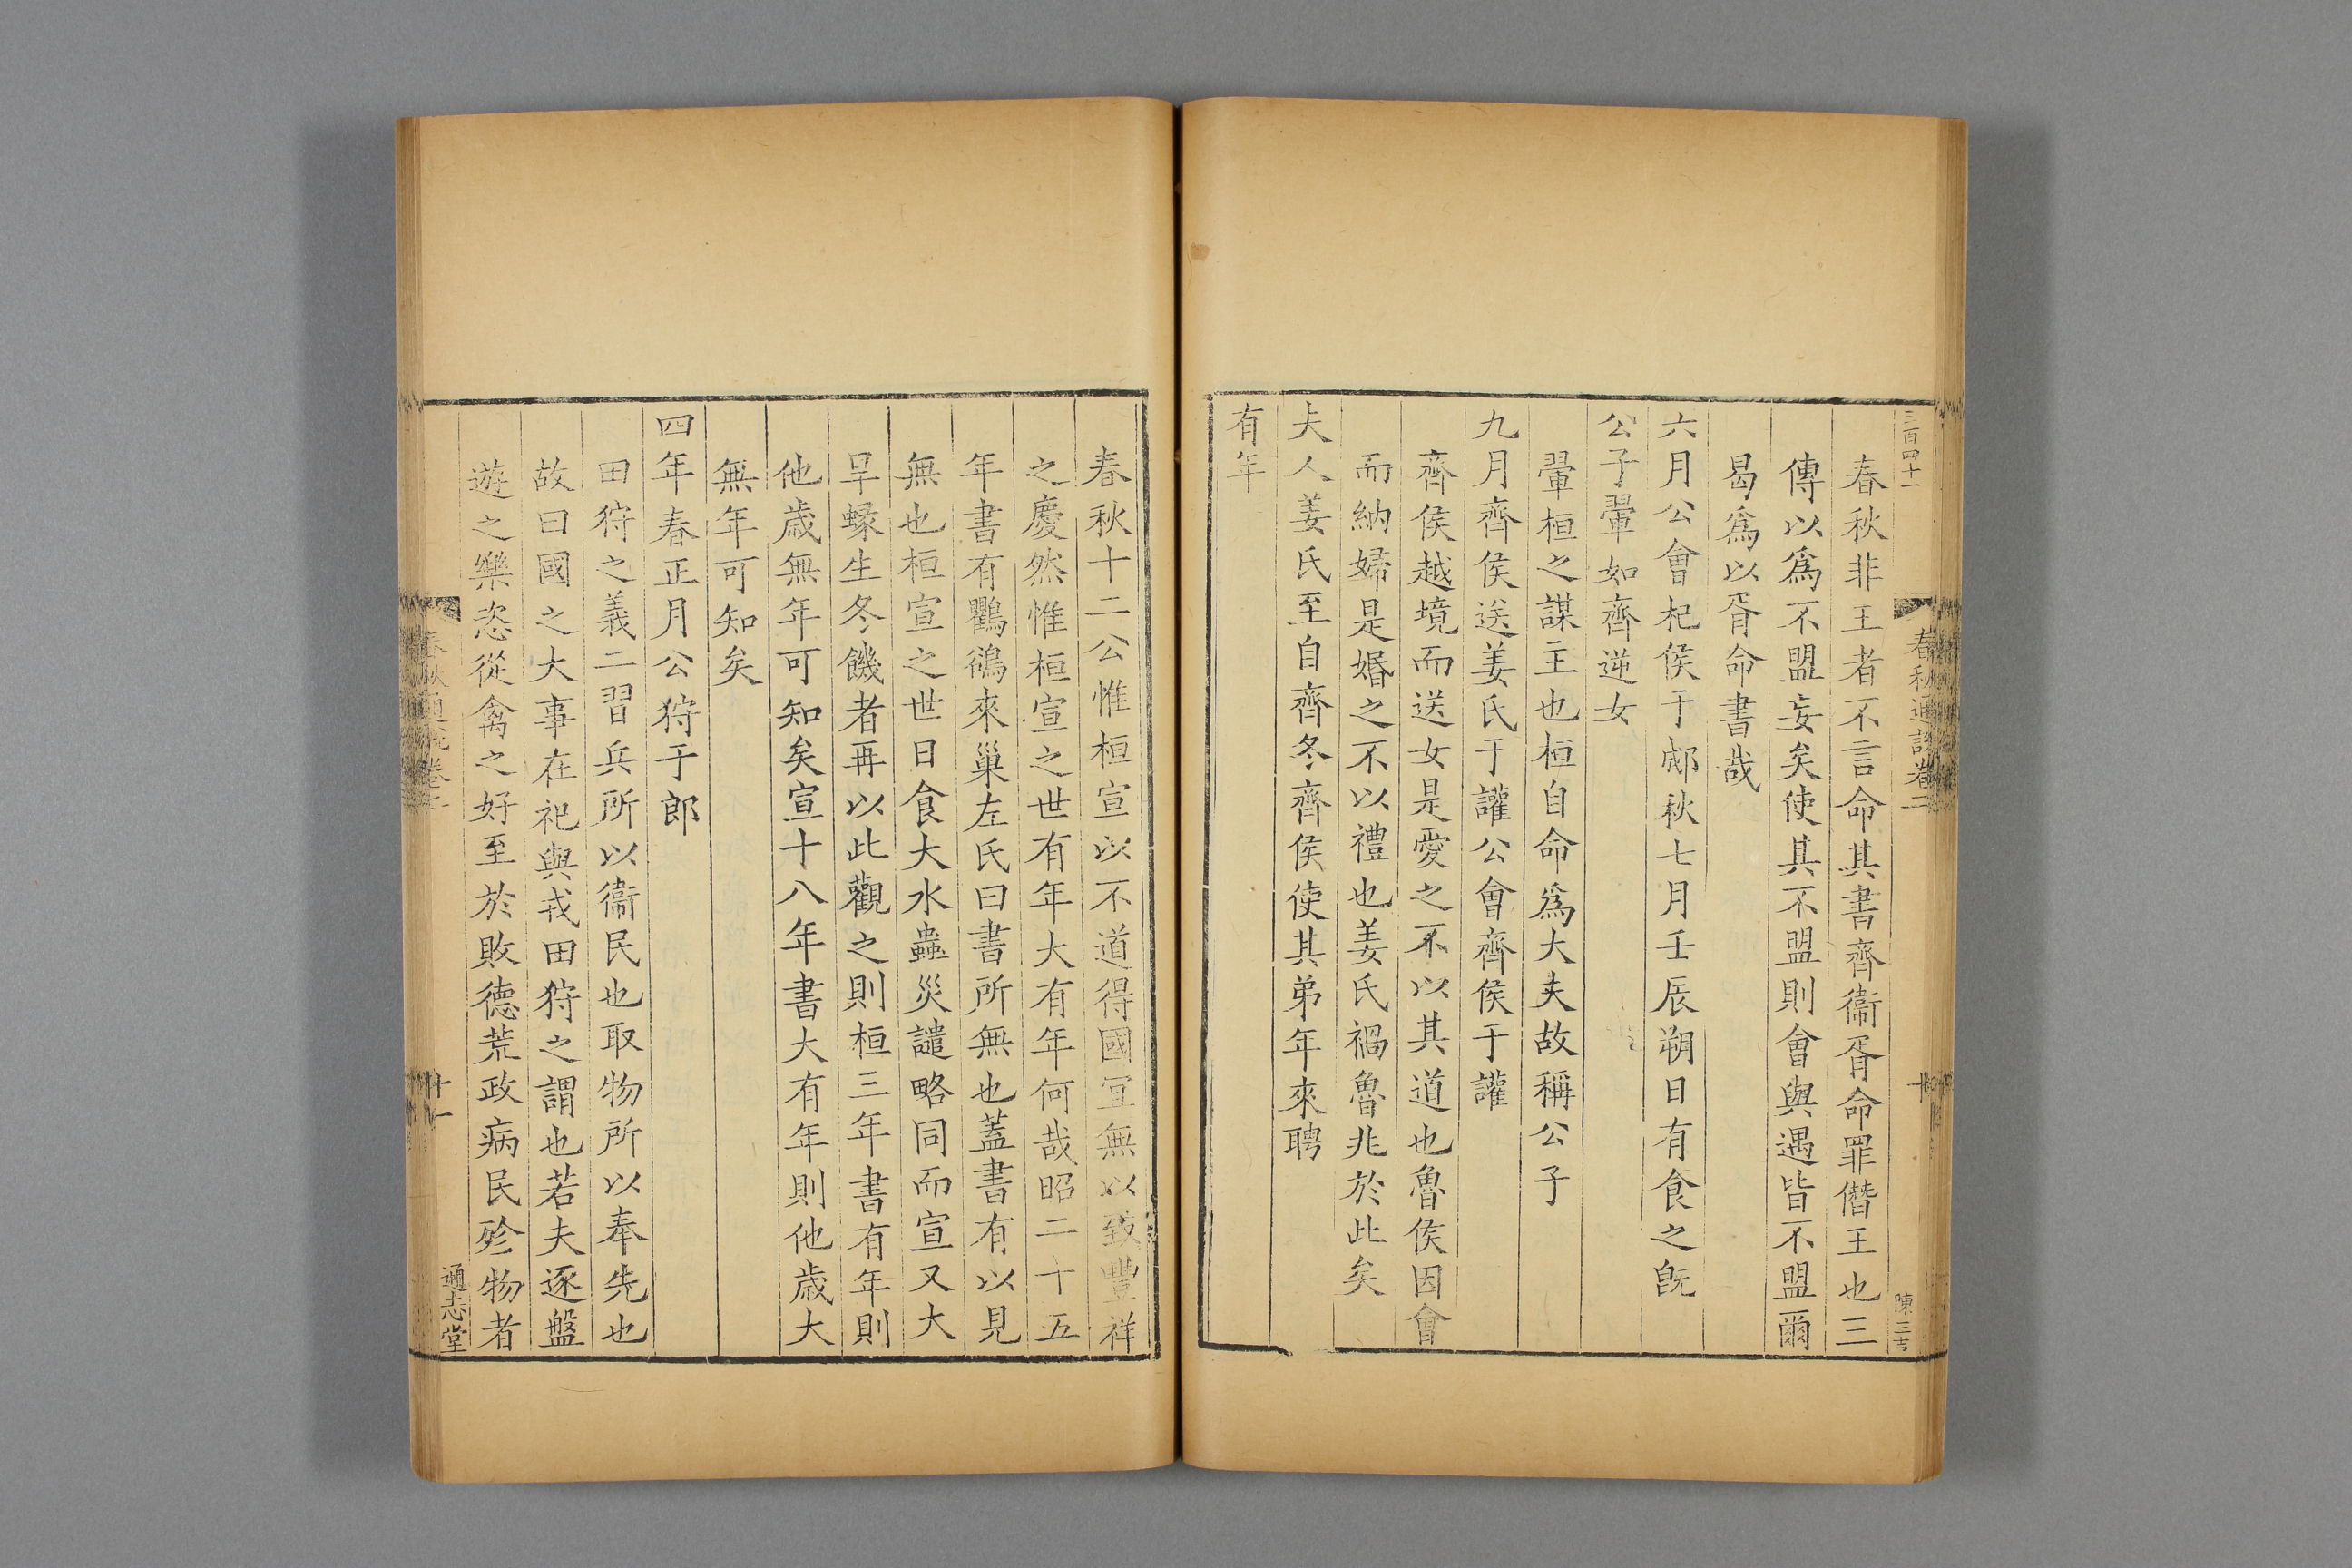 三百四十一
春秋通說卷二
十
陳三吉
春秋非王者不言命其書齊衞胥命罪僭王也三
傳以爲不盟妄矣使其不盟則會與遇皆不盟爾
曷爲以胥命書哉
六月公會杞侯于郕秋七月壬辰朔日有食之旣
公子翬如齊逆女
翬桓之謀主也桓自命爲大夫故稱公子
九月齊侯送姜氏于讙公會齊侯于讙
齊侯越境而送女是愛之不以其道也魯侯因會
而納婦是婚之不以禮也姜氏禍魯兆於此矣
夫人姜氏至自齊冬齊侯使其弟年來聘
有年
春秋十二公惟桓宣以不道得國宜無以致豐祥
之慶然惟桓宣之世有年大有年何哉昭二十五
年書有鸜鵒來巢左氏曰書所無也蓋書有以見
無也桓宣之世日食大水螽災譴略同而宣又大
旱蝝生冬饑者再以此觀之則桓三年書有年則
他歲無年可知矣宣十八年書大有年則他歲大
無年可知矣
四年春正月公狩于郎
田狩之義二習兵所以衞民也取物所以奉先也
故曰國之大事在祀與戎田狩之謂也若夫逐盤
遊之樂恣從禽之好至於敗德荒政病民殄物者
春秋通說卷二
十一
通志堂